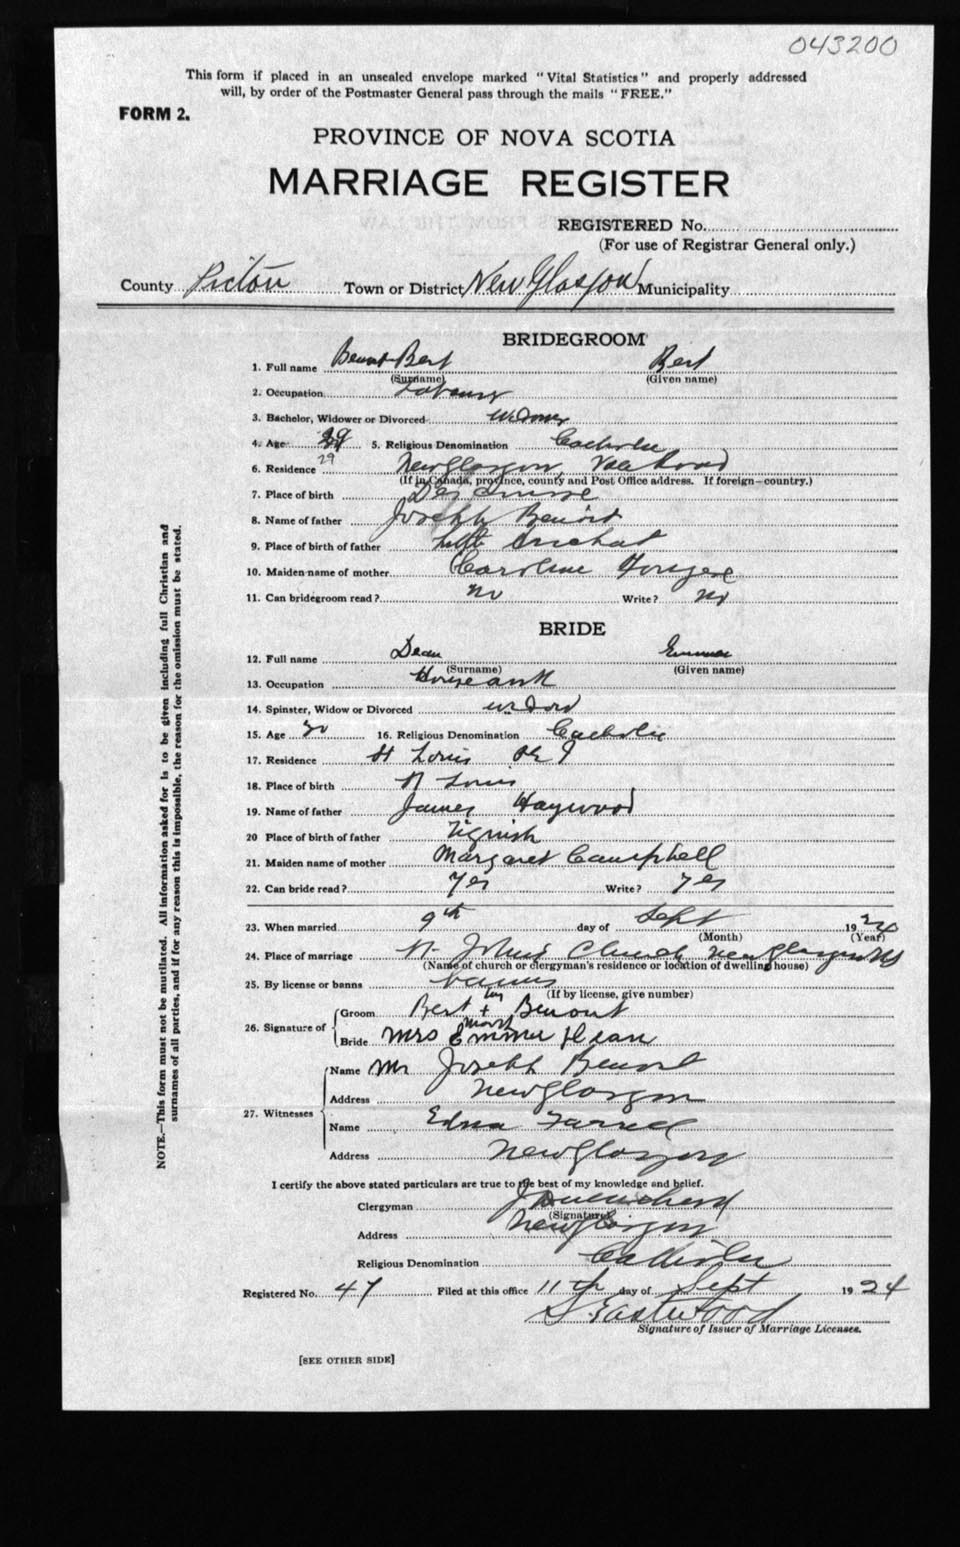 043200
This form if placed in an unsealed envelope marked "Vital Statistics" and properly addressed
will, by order of the Postmaster General pass through the mails "FREE."
FORM 2.
PROVINCE OF NOVA SCOTIA
MARRIAGE REGISTER
REGISTERED No.
(For use of Registrar General only.)
County Pictou Town or District New Glasgow Municipality
BRIDEGROOM
1. Full name Benoit Bert Bert
(Surname) (Given name)
2. Occupation Labourer
3. Bachelor, Widower or Divorced Widower
4. Age 29 5. Religious Denomination Catholic
29
6. Residence New Glasgow Vale Road
(If in Canada, province, county and Post Office address. If foreign—country.)
7. Place of birth
8. Name of father Joseph Benoit
9. Place of birth of father Little Arichat
10. Maiden name of mother Caroline Fougere
11. Can bridegroom read? no Write? no
BRIDE
12. Full name Dean Emma
(Surname) (Given name)
13. Occupation Housework
14. Spinster, Widow or Divorced Widow
15. Age 30 16. Religious Denomination Catholic
17. Residence St Louis P E I
18. Place of birth St Louis
19. Name of father James Haywood
20 Place of birth of father Tignish
21. Maiden name of mother Margaret Campbell
22. Can bride read? yes Write? yes
23. When married 9th day of Sept 1924
(Month) (Year)
24. Place of marriage St John's Church New Glasgow NS
(Name of church or clergyman's residence or location of dwelling house)
25. By license or banns banns
(If by license, give number)
26. Signature of Groom Bert his + mark Benoit
Bride Mrs Emma Dean
27. Witnesses Name Mr Joseph Benoit
Address New Glasgow
Name Edna Farrell
Address New Glasgow
I certify the above stated particulars are true to the best of my knowledge and belief.
Clergyman
(Signature)
Address New Glasgow
Religious Denomination Catholic
Registered No. 47 Filed at this office 11th day of Sept 1924
S. Eastwood
Signature of Issuer of Marriage Licenses.
[SEE OTHER SIDE]
NOTE.—This form must not be mutilated. All information asked for is to be given including full Christian and
surnames of all parties, and if for any reason this is impossible, the reason for the omission must be stated.